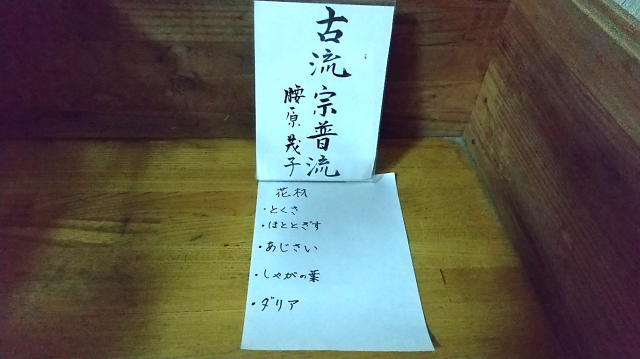 古流宗普流
腰原茂子
花材
・とくさ
・ほととぎす
・あじさい
・しゃがの葉
・ダリア